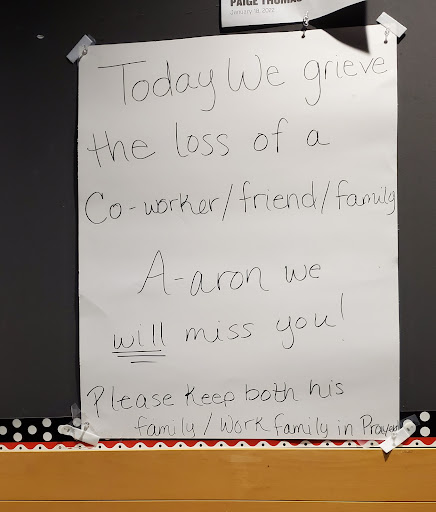 PAIGE THOMAS
January 18, 2022
Today We grieve
the loss of a
Co-worker/friend/family
A-aron we
will miss you!
Please Keep both his
family/Work family in Prayer